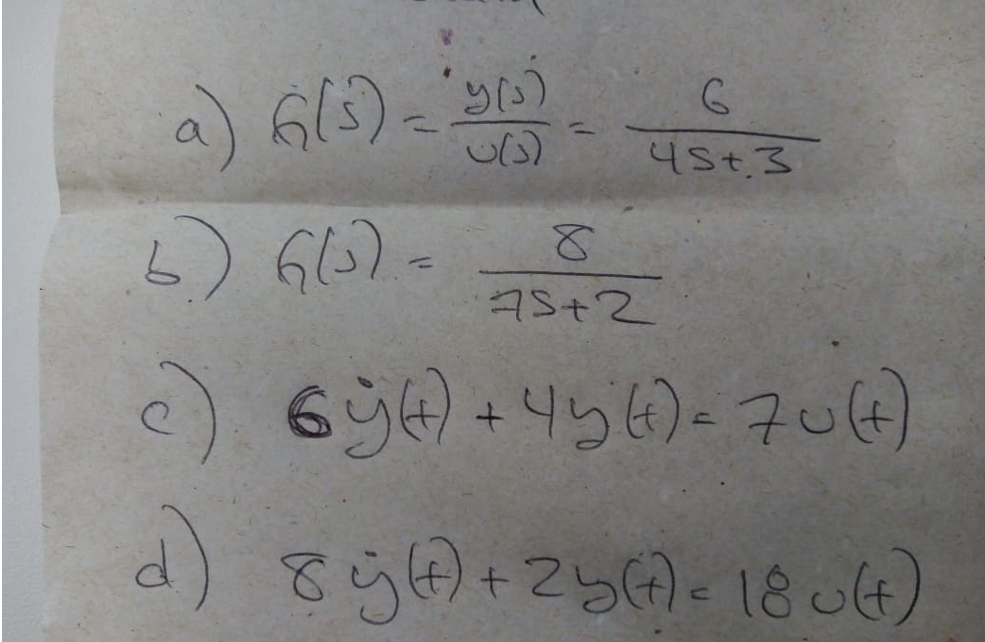 a) G(s) = y(s)/u(s) = 6/4s+3
b) G(s) = 8/7s+2
c) 6ẏ(t) + 4y(t) = 7u(t)
d) 8ẏ(t) + 2y(t) = 18u(t)